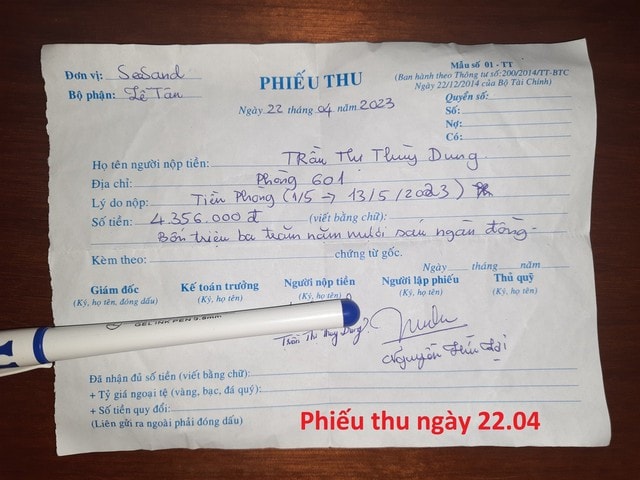 Đơn vị: SeSand
Bộ phận: Lễ Tân
PHIẾU THU
Ngày 22 tháng 04 năm 2023
Mẫu số 01 - TT
(Ban hành theo Thông tư số:200/2014/TT-BTC
Ngày 22/12/2014 của Bộ Tài Chính)
Quyển số:
Số:
Nợ:
Có:
Họ tên người nộp tiền: Trần Thị Thùy Dung
Địa chỉ: Phòng 601
Lý do nộp: Tiền Phòng (1/5 → 13/5/2023)
Số tiền: 4.356.000 đ (viết bằng chữ):
Bốn triệu ba trăm năm mươi sáu ngàn đồng
Kèm theo: chứng từ gốc.
Ngày tháng năm
Giám đốc Kế toán trưởng Người nộp tiền Người lập phiếu Thủ quỹ
(Ký, họ tên, đóng dấu) (Ký, họ tên) (Ký, họ tên) (Ký, họ tên) (Ký, họ tên)
GEL INK PEN 0.5mm
Trần Thị Thùy Dung
Nguyễn
Đã nhận đủ số tiền (viết bằng chữ):
+ Tỷ giá ngoại tệ (vàng, bạc, đá quý):
+ Số tiền quy đổi:
(Liên gửi ra ngoài phải đóng dấu)
Phiếu thu ngày 22.04